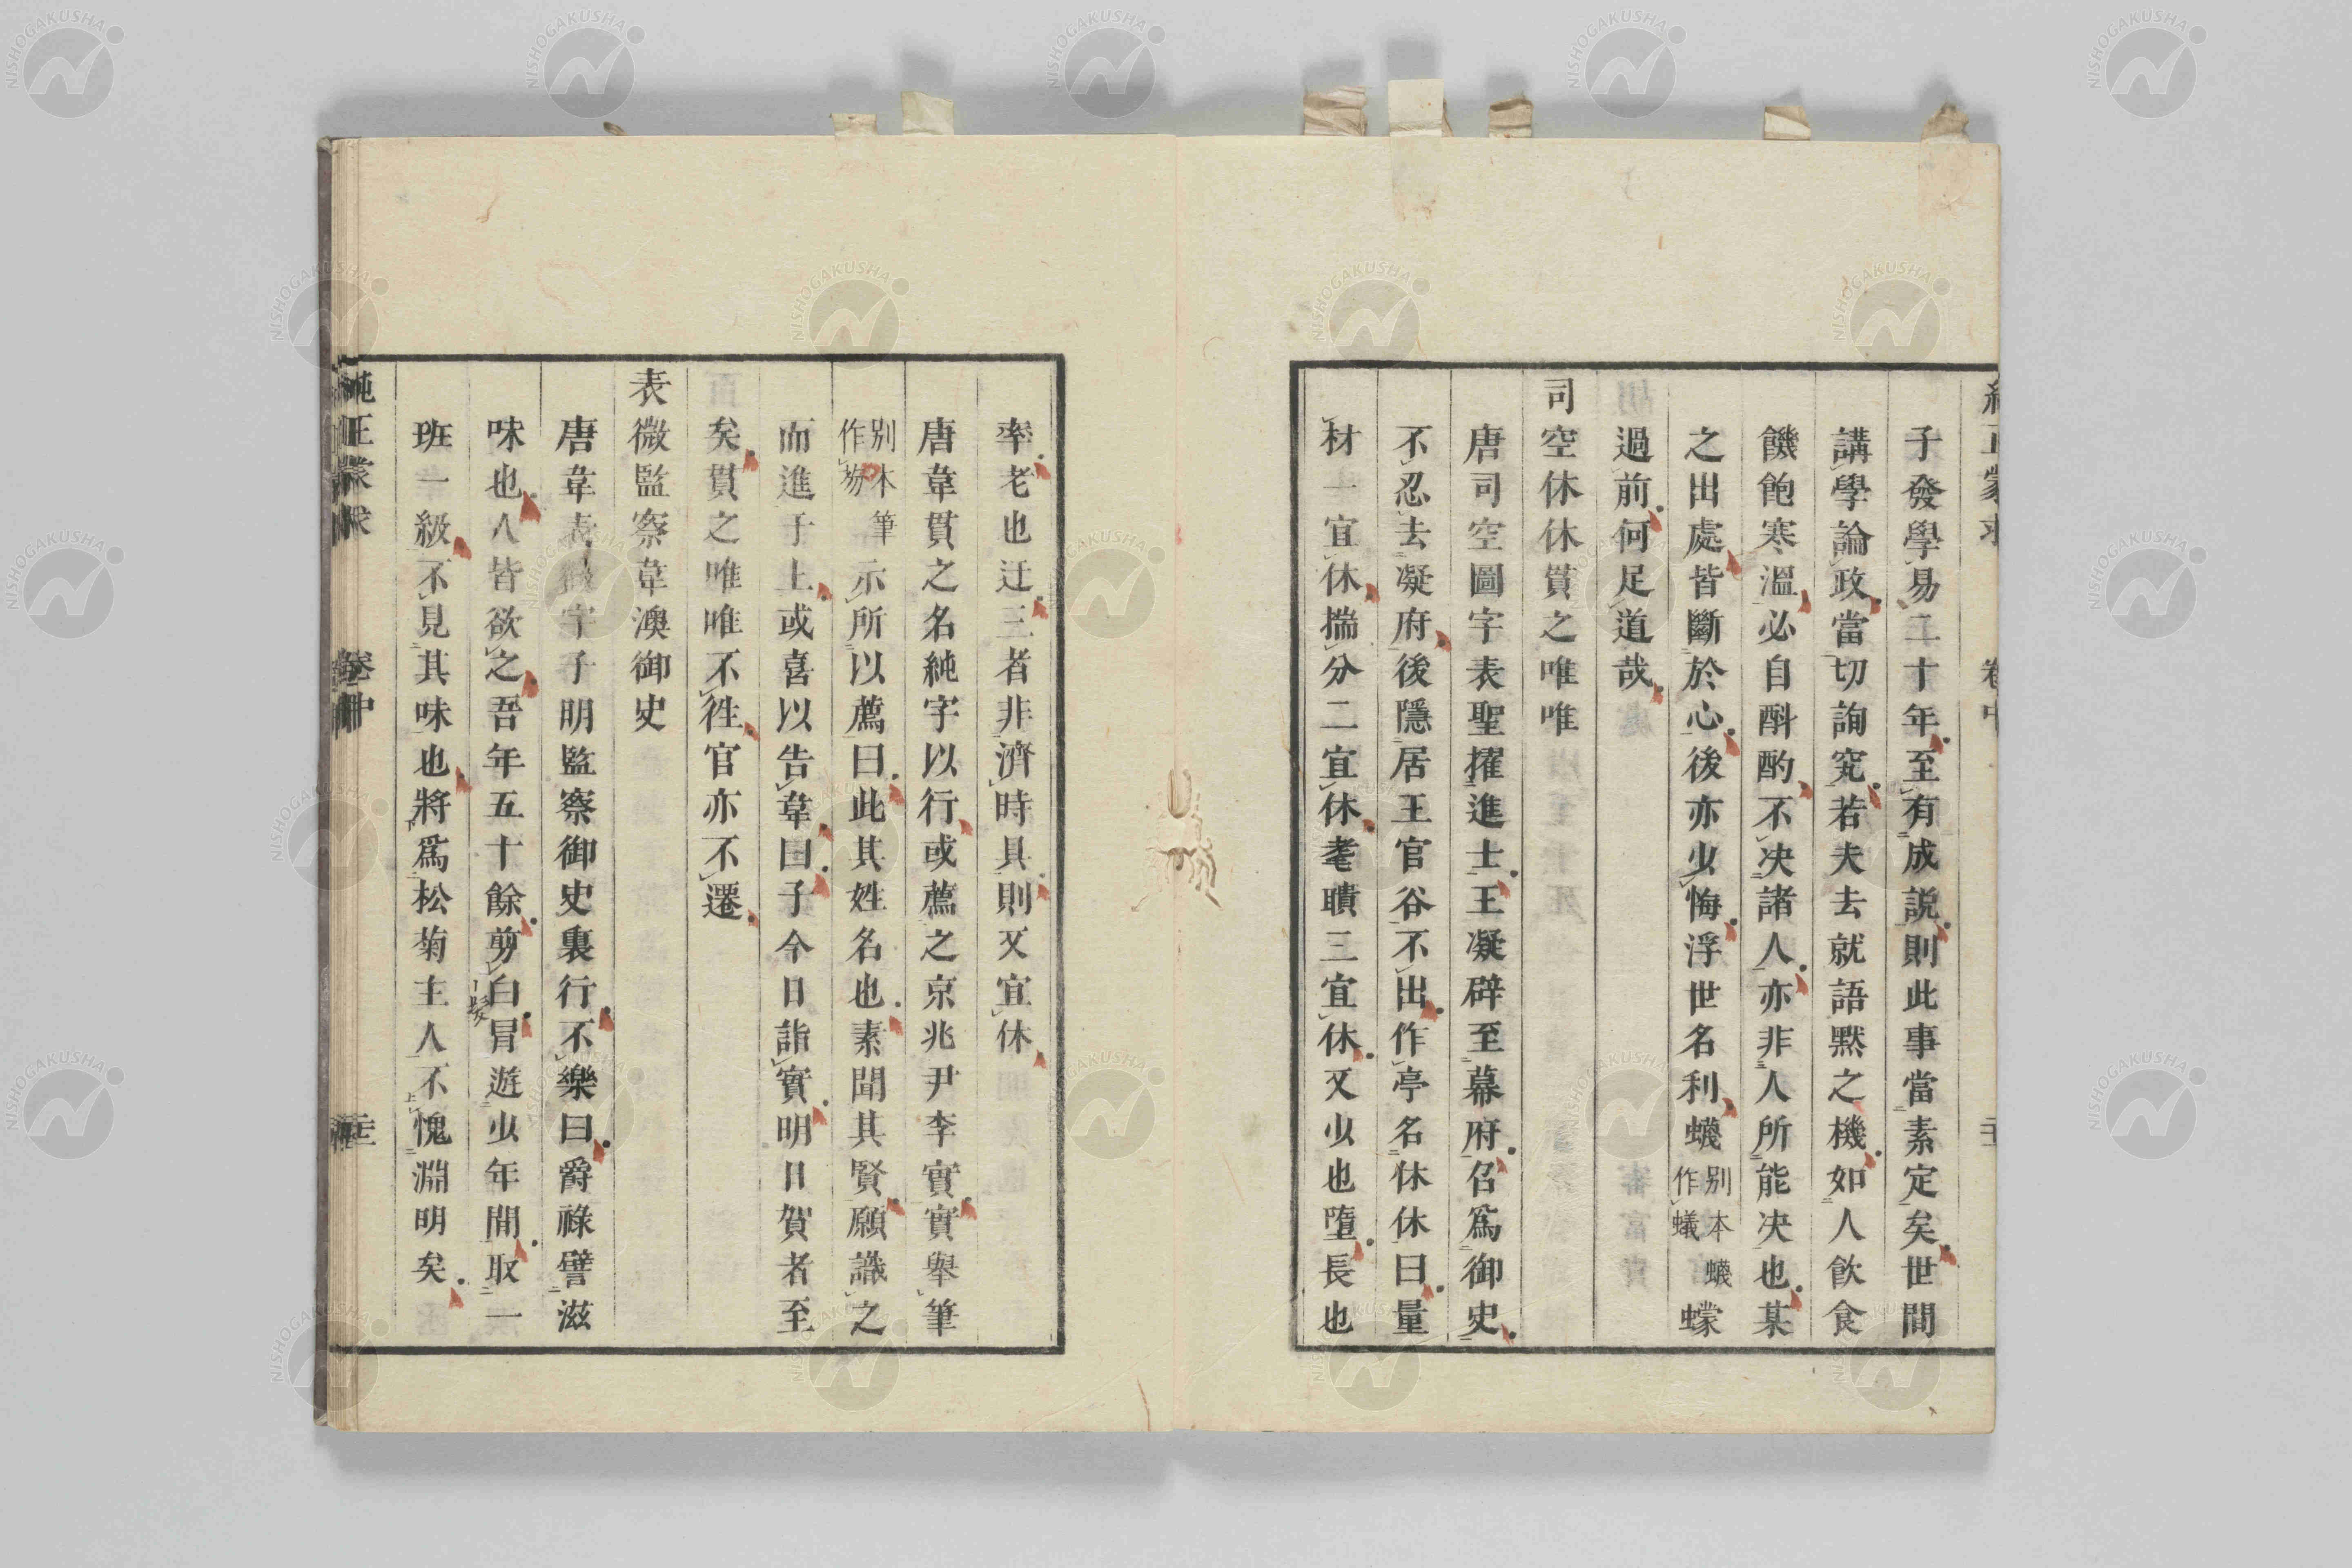 子發學易二十年至有成説則此事當素定矣世間
講學論政當切詢究若夫去就語黙之機如人飲食
饑飽寒溫必自斟酌不决諸人亦非人所能决也某
之出處皆斷於心後亦少悔浮世名利蠛別本蠛作蟻蠓
過前何足道哉
司空休休貫之唯唯
唐司空圖字表聖擢進士王凝辟至幕府召爲御史
不忍去凝府後隱居王官谷不出作亭名休休曰量
材一宜休揣分二宜休耄聵三宜休又少也墮長也
率老也迂三者非濟時具則又宜休
唐韋貫之名純字以行或薦之京兆尹李實實舉筆
別本筆作笏示所以薦曰此其姓名也素聞其賢願識之
而進于上或喜以告韋曰子今日詣實明日賀者至
矣貫之唯唯不徃官亦不遷
表微監察韋澳御史
唐韋表微字子明監察御史裏行不樂曰爵祿譬滋
味也人皆欲之吾年五十餘剪白冒遊少年間取一
班一級不見其味也將爲松菊主人不愧淵明矣
髮
純正蒙求 卷中
NISHOGAKUSHA